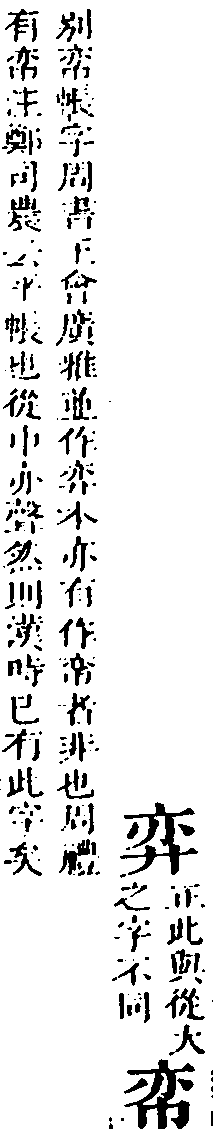 弈
正此與從大
之字不同
帟
別帟帳字周書王會廣雅並作弈本亦有作帟者非也周禮
有帟注鄭司農云平帳也從巾亦聲然則漢時已有此字矣